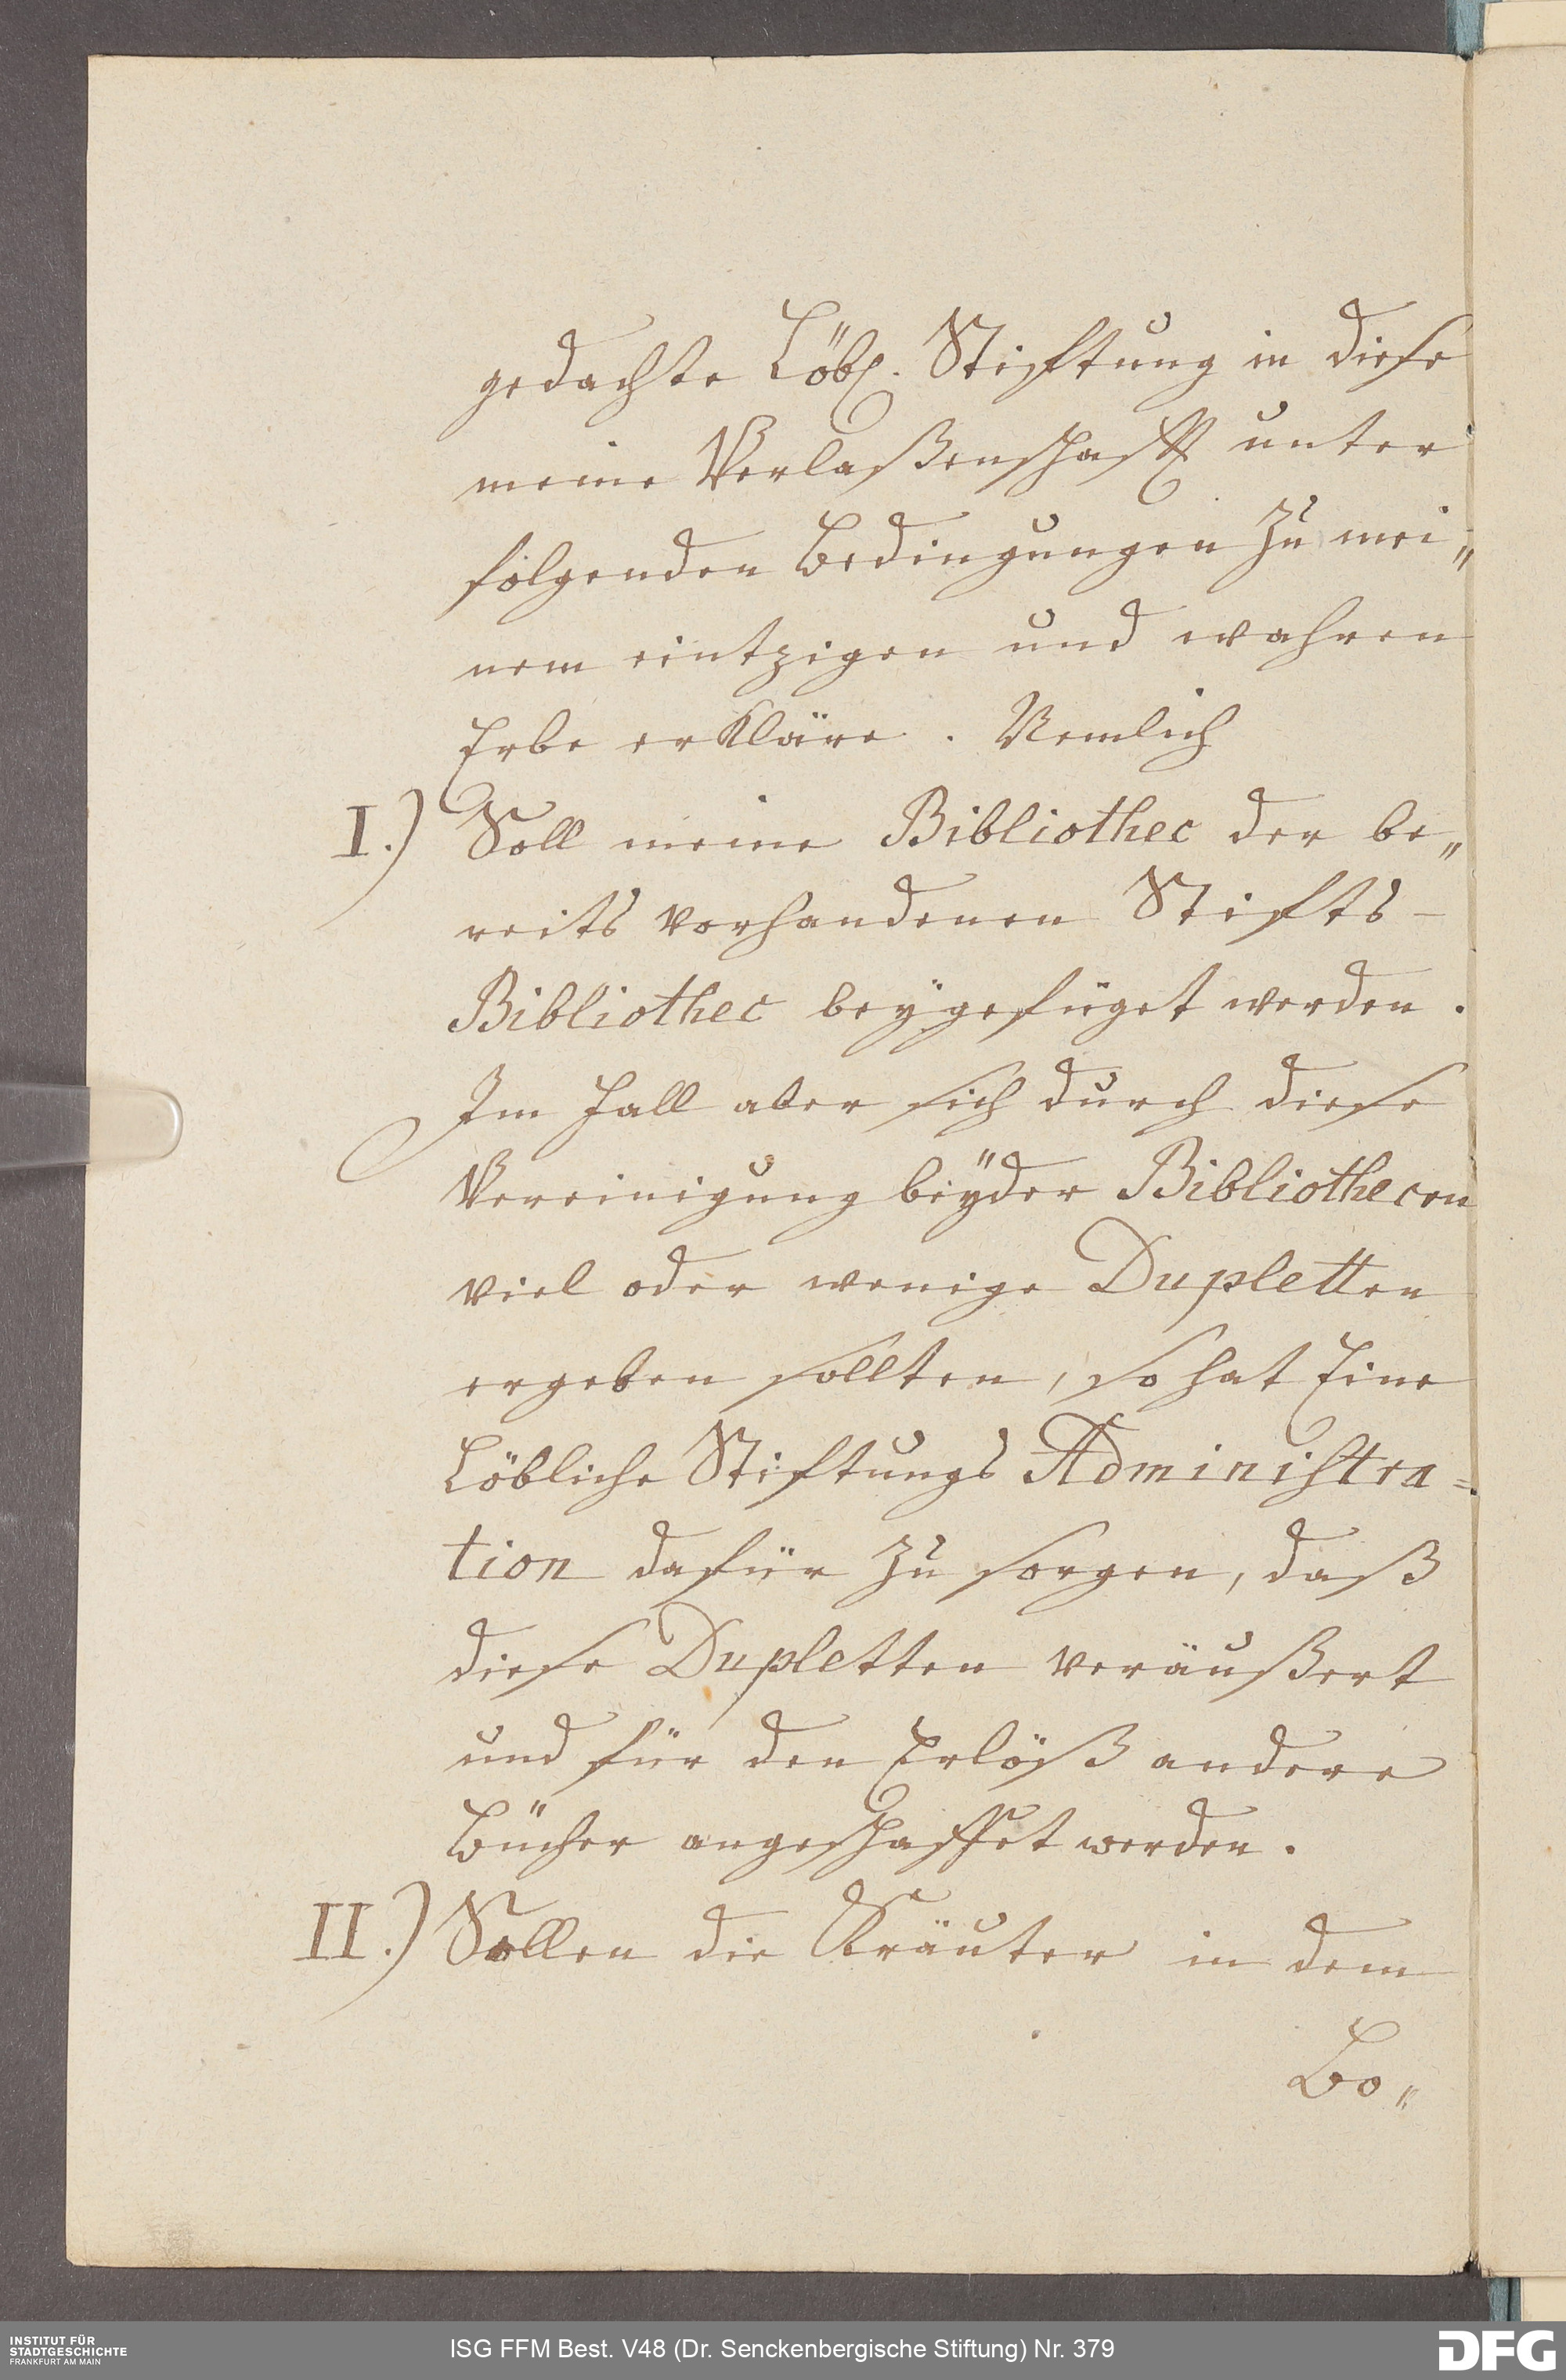 gedachte Löbl. Stiftung in diese
meine Verlaßenschafft unter
folgenden Bedingungen zu mei„
nem eintzigen und wahren
Erbe erkläre. Nemlich
I.) Soll meine Bibliothec der be„
reits vorhandenen Stifts-
Bibliothec beÿgefüget werden.
Im Fall aber sich durch diese
Vereinigung beÿder Bibliothecen
viel oder wenige Dupletten
ergeben sollten, so hat Eine
Löbliche Stiftungs Administra=
tion dafür zu sorgen, daß
diese Dupletten veräußert
und für den Erlöß andere
Bücher angeschaffet werden.
II.) Sollen die Kräuter in dem
Bo„
INSTITUT FÜR
STADTGESCHICHTE
FRANKFURT AM MAIN
ISG FFM Best. V48 (Dr. Senckenbergische Stiftung) Nr. 379
DFG